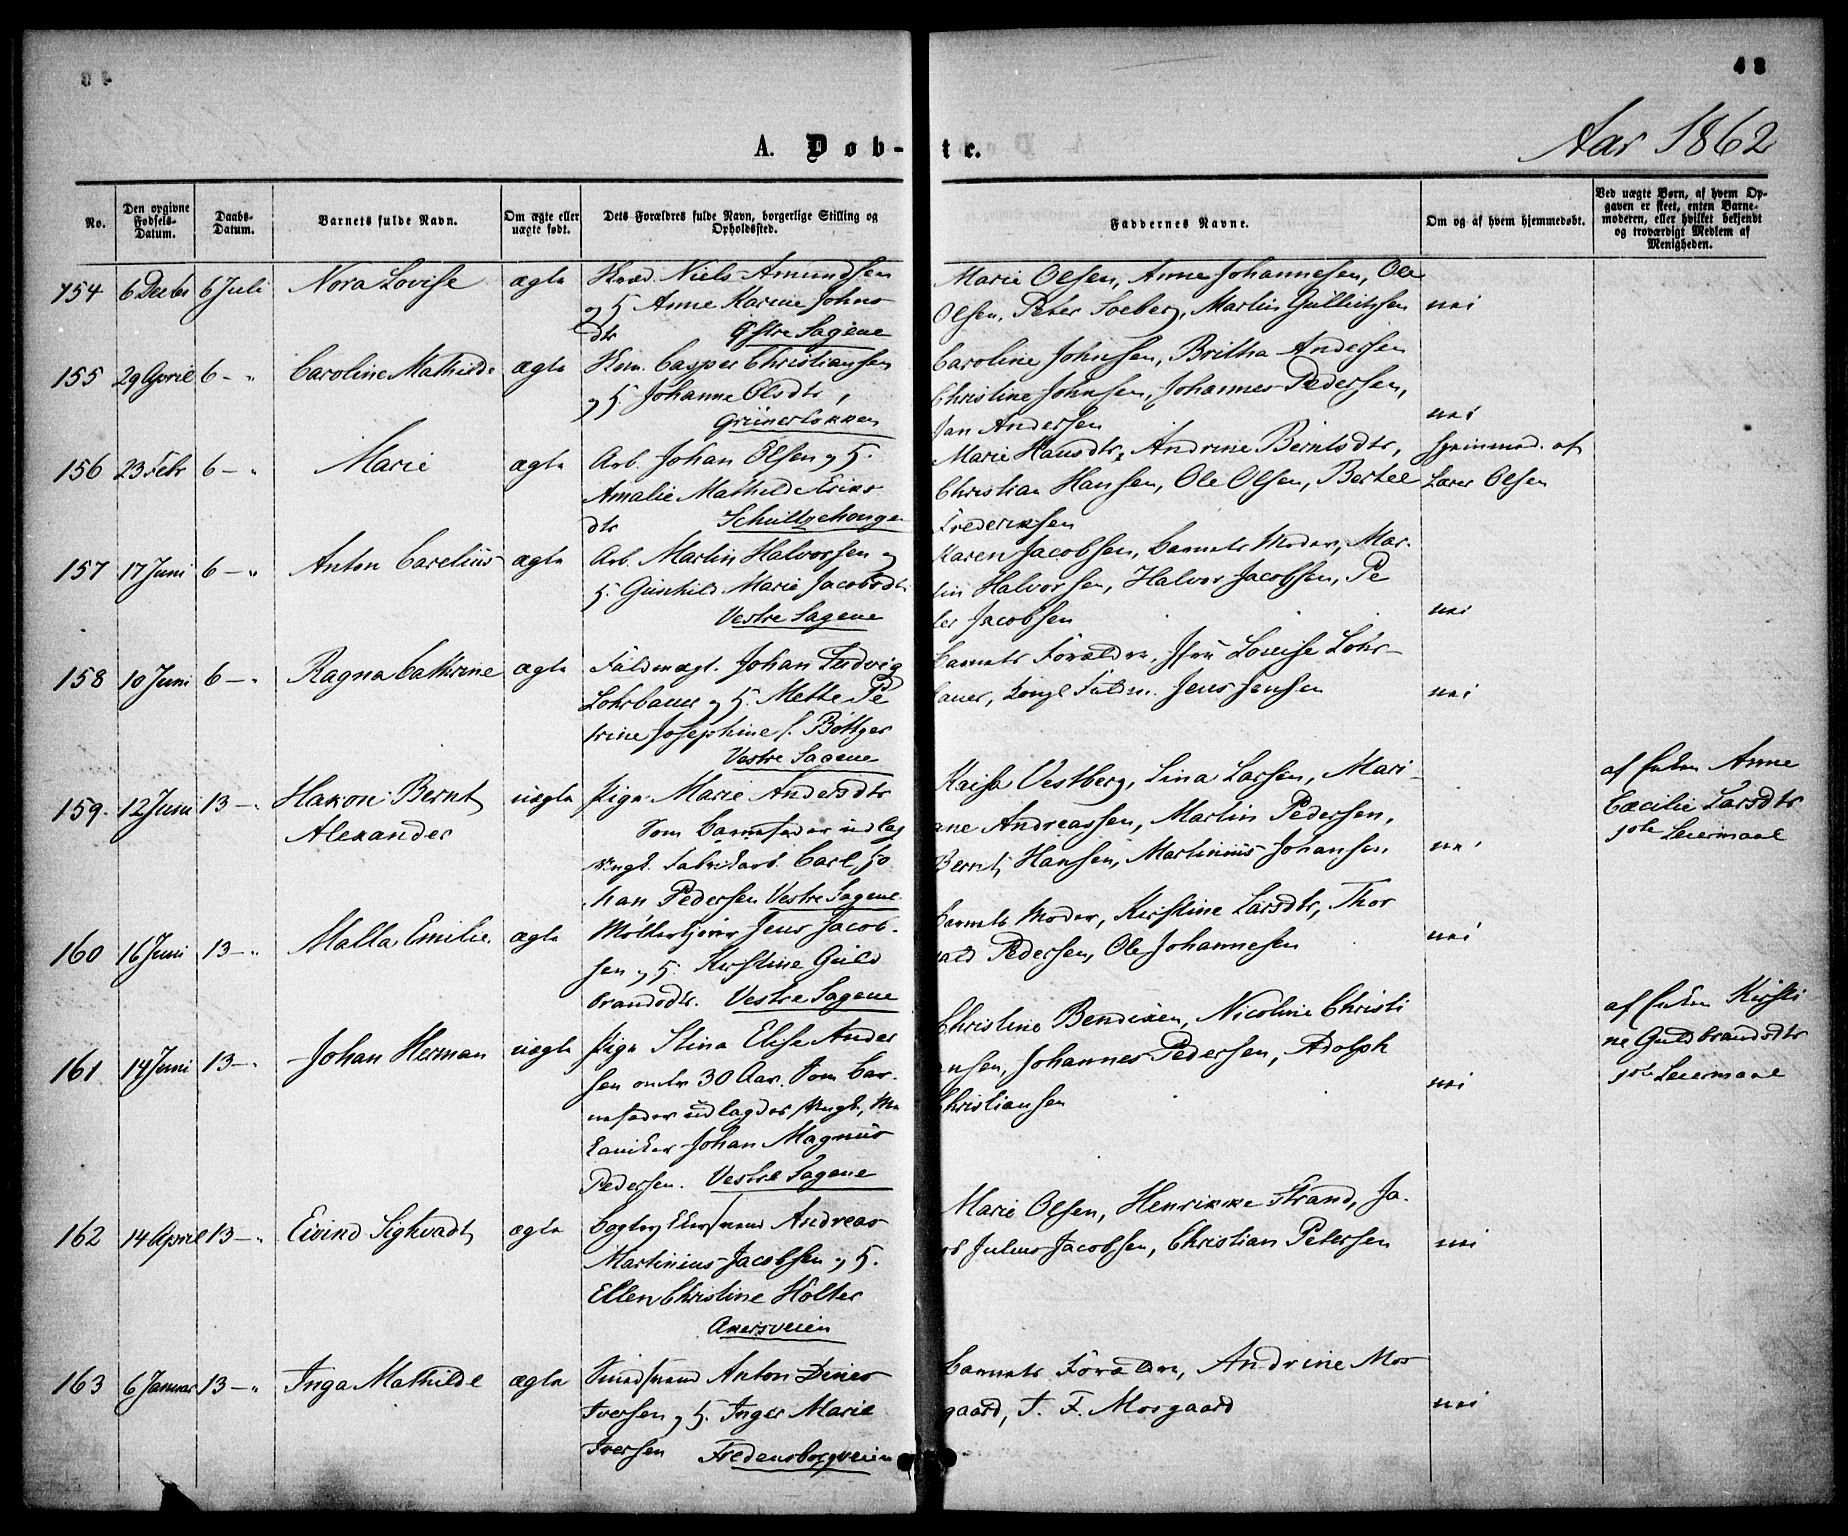 48
Aar 1862
A. Døbte.
No.
Den opgivne Fødsels-Datum.
Daabs-Datum.
Barnets fulde Navn.
Om ægte eller uægte født.
Dets Forældres fulde Navn, borgerlige Stilling og Opholdssted.
Faddernes Navne.
Om og af hvem hjemmedøbt.
Ved uægte Børn, af hvem Opgaven er skeet, enten Barnemoderen, eller hvilket bekjendt og troværdigt Medlem af Menigheden.
154 6 Decbr 6 Juli Nora Lovise ægte Niels Amundsen
og H. Anne Karine Johns
dtr Østre Sagene
Marie Olsen, Anne Johannesen, Ole
Olsen, Peter Soeberg, Martin Gullichsen nei
155 29 April 6 - " Caroline Mathilde ægte Casper Christiansen
og H. Johanne Olsdtr,
Grünerløkken
Caroline Johnsen, Britha Andersen
Christine Johnsen, Johannes Pedersen,
Jan Andersen nei
156 23 Febr 6 - " Marie ægte Arb. Johan Olsen og H.
Amalie Mathilde Eriks
dtr Schultzehougen
Marie Hansdtr, Andrine Berntsdtr,
Christian Hansen, Ole Olsen, Bertel
Frederiksen
hjemmed. af
Lærer Olsen
157 17 Juni 6 - " Anton Carelius ægte Arb. Martin Halvorsen og
H. Gunhild Marie Jacobsdtr
Vestre Sagene
Karen Jacobsen, Barnets Moder, Mar-
tin Halvorsen, Halvor Jacobsen, Pe
ter Jacobsen nei
158 10 Juni 6 - " Ragna Cathrine ægte Fuldmægt. Johan Ludvig
Lohrbauer og H. Mette Pe
trine Josephine f. Bøttger
Vestre Sagene
Barnets Forældre, Jfru Lovise Lohr-
bauer, Fuldm. Jens Jensen nei
159. 12 Juni 13 - " Hakon Bernt
Alexander uægte Pige Marie Andersdtr
Som Barnefader udlagt
Ungk. Fabrikarb. Carl Jo
han Pedersen Vestre Sagene
Kaisa Vestberg, Lina Larsen, Mari-
ane Andreassen, Martin Pedersen,
Bernt Hansen, Martinius Johansen nei
af Enken Anne
Cæcilie Larsdtr
1ste Leiermaal
160 16 Juni 13 - " Malla Emilie ægte Møllerkjører Jens Jacob-
sen og H. Kirstine Guld
brandsdtr. Vestre Sagene
Barnets Moder, Kirstine Larsdtr, Thor
vald Pedersen, Ole Johannesen nei
161 14 Juni 13 - " Johan Herman uægte Pige Stina Elise Ander
sen under 30 Aar. Som Bar-
nefader udlagdes Ungk. Me
kaniker Johan Magnus
Pedersen. Vestre Sagene
Christine Bendixen, Nicoline Christi
ansen, Johannes Pedersen, Adolph
Christiansen nei
af Enken Kirsti
ne Guldbrandsdtr
1ste Leiermaal
162 14 April 13 - " Eivind Sighvadt ægte Andreas
Martinius Jacobsen og H.
Ellen Christine Holter
Akersveien
Marie Olsen, Henrikke Strand, Ja-
cob Julius Jacobsen, Christian Petersen nei
163 6 Januar 13 - " Inga Mathilde ægte Anton Dines
Iversen og H. Inger Marie
Iversen Fredensborgveien
Barnets Forældre, Andrine Mos
gaard, T. F. Mosgaard nei